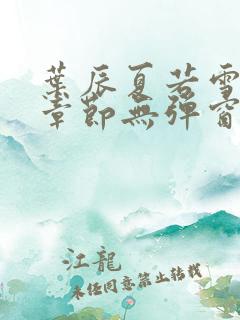 葉辰夏若雪
章節無彈窗
江龍
未经同意禁止转载